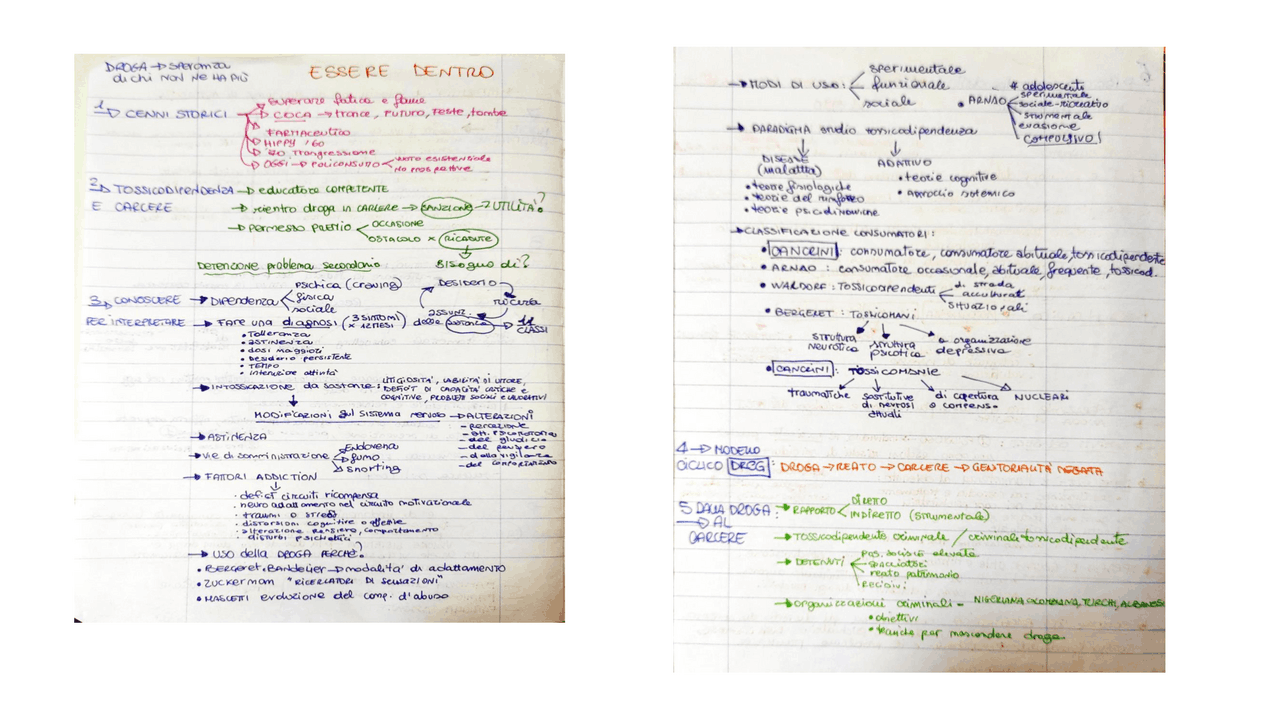 DROGA → speranza
di chi NON NE HA PIÙ
ESSERE DENTRO
1 → CENNI STORICI
→ superare fatica e fame
→ COCA → trance, futuro, feste, tombe
→ FARMACEUTICO
→ HIPPY '60
→ 80 trasgressione
→ OGGI → POLICONSUMO
VUOTO ESISTENZIALE
NO PROSPETTIVE
2 → TOSSICODIPENDENZA → educatore COMPETENTE
E CARCERE → rientro droga in CARCERE → SANZIONE → UTILITÀ?
→ PERMESSO PREMIO
OCCASIONE
OSTACOLO x RICADUTE
DETENZIONE problema secondario
BISOGNO di?
3 → CONOSCERE
PER INTERPRETARE
→ DIPENDENZA
psichica (craving)
fisica
sociale
DESIDERIO
RICERCA
ASSUNZ.
→ FARE una diagnosi (3 SINTOMI x 12 MESI) delle sostanze → 11 CLASSI
• Tolleranza
• ASTINENZA
• dosi maggiori
• Desiderio persistente
• TEMPO
• interruzione attività
→ INTOSSICAZIONE da sostanze: LITIGIOSITÀ, LABILITÀ DI UMORE,
DEFICIT DI CAPACITÀ CRITICHE E
COGNITIVE, PROBLEMI SOCIALI E LAVORATIVI
MODIFICAZIONI sul SISTEMA nervoso → ALTERAZIONI
- percezione
- att. PSICOMOTORIA
- del giudizio
- del pensiero
- della vigilanza
- del comportamento
→ ASTINENZA
→ vie di somministrazione
Endovena
fumo
snorting
→ FATTORI ADDICTION
• deficit circuiti ricompensa
• neuro adattamento nel circuito motivazionale
• traumi o stress
• distorsioni cognitive o affettive
• alterazione pensiero, comportamento
• disturbi psichiatrici
→ USO della DROGA PERCHÈ?
• BERGERET-BANDELIER → modalità di adattamento
• ZUCKERMAN "RICERCATORI DI SENSAZIONI"
• MASCETTI evoluzione del comp. d'abuso
→ MODI DI USO:
sperimentale
funzionale
sociale
• ARNAO
# adolescenti
sperimentale
sociale-ricreativo
strumentale
evasione
COMPULSIVO!
→ PARADIGMA studio tossicodipendenza
DISEASE
(malattia)
• teorie fisiologiche
• teorie del rinforzo
• teorie psicodinamiche
ADATTIVO
• teorie cognitive
• Approccio sistemico
→ CLASSIFICAZIONE CONSUMATORI:
• CANCRINI: consumatore, consumatore abituale, tossicodipendente
• ARNAO: consumatore occasionale, abituale, frequente, tossicod.
• WALDORF: TOSSICODIPENDENTI
di strada
acculturati
situazionali
• BERGERET: TOSSICOMANI
struttura
nevrotica
struttura
psicotica
organizzazione
depressiva
• CANCRINI: TOSSICOMANIE
traumatiche
sostitutive
di nevrosi
attuali
di copertura
o compens.
NUCLEARI
4 → MODELLO
CICLICO DRCG: DROGA → REATO → CARCERE → GENITORIALITÀ NEGATA
5 DALLA DROGA:
→ AL
CARCERE
→ RAPPORTO
DIRETTO
INDIRETTO (strumentale)
→ TOSSICODIPENDENTE criminale / criminale tossicodipendente
→ DETENUTI
pos. sociale elevata
spacciatori
reato patrimonio
RECIDIVI
→ organizzazioni criminali - NIGERIANA, COLOMBIANA, TURCHI, ALBANESI
• obiettivi
• tecniche per nascondere droga